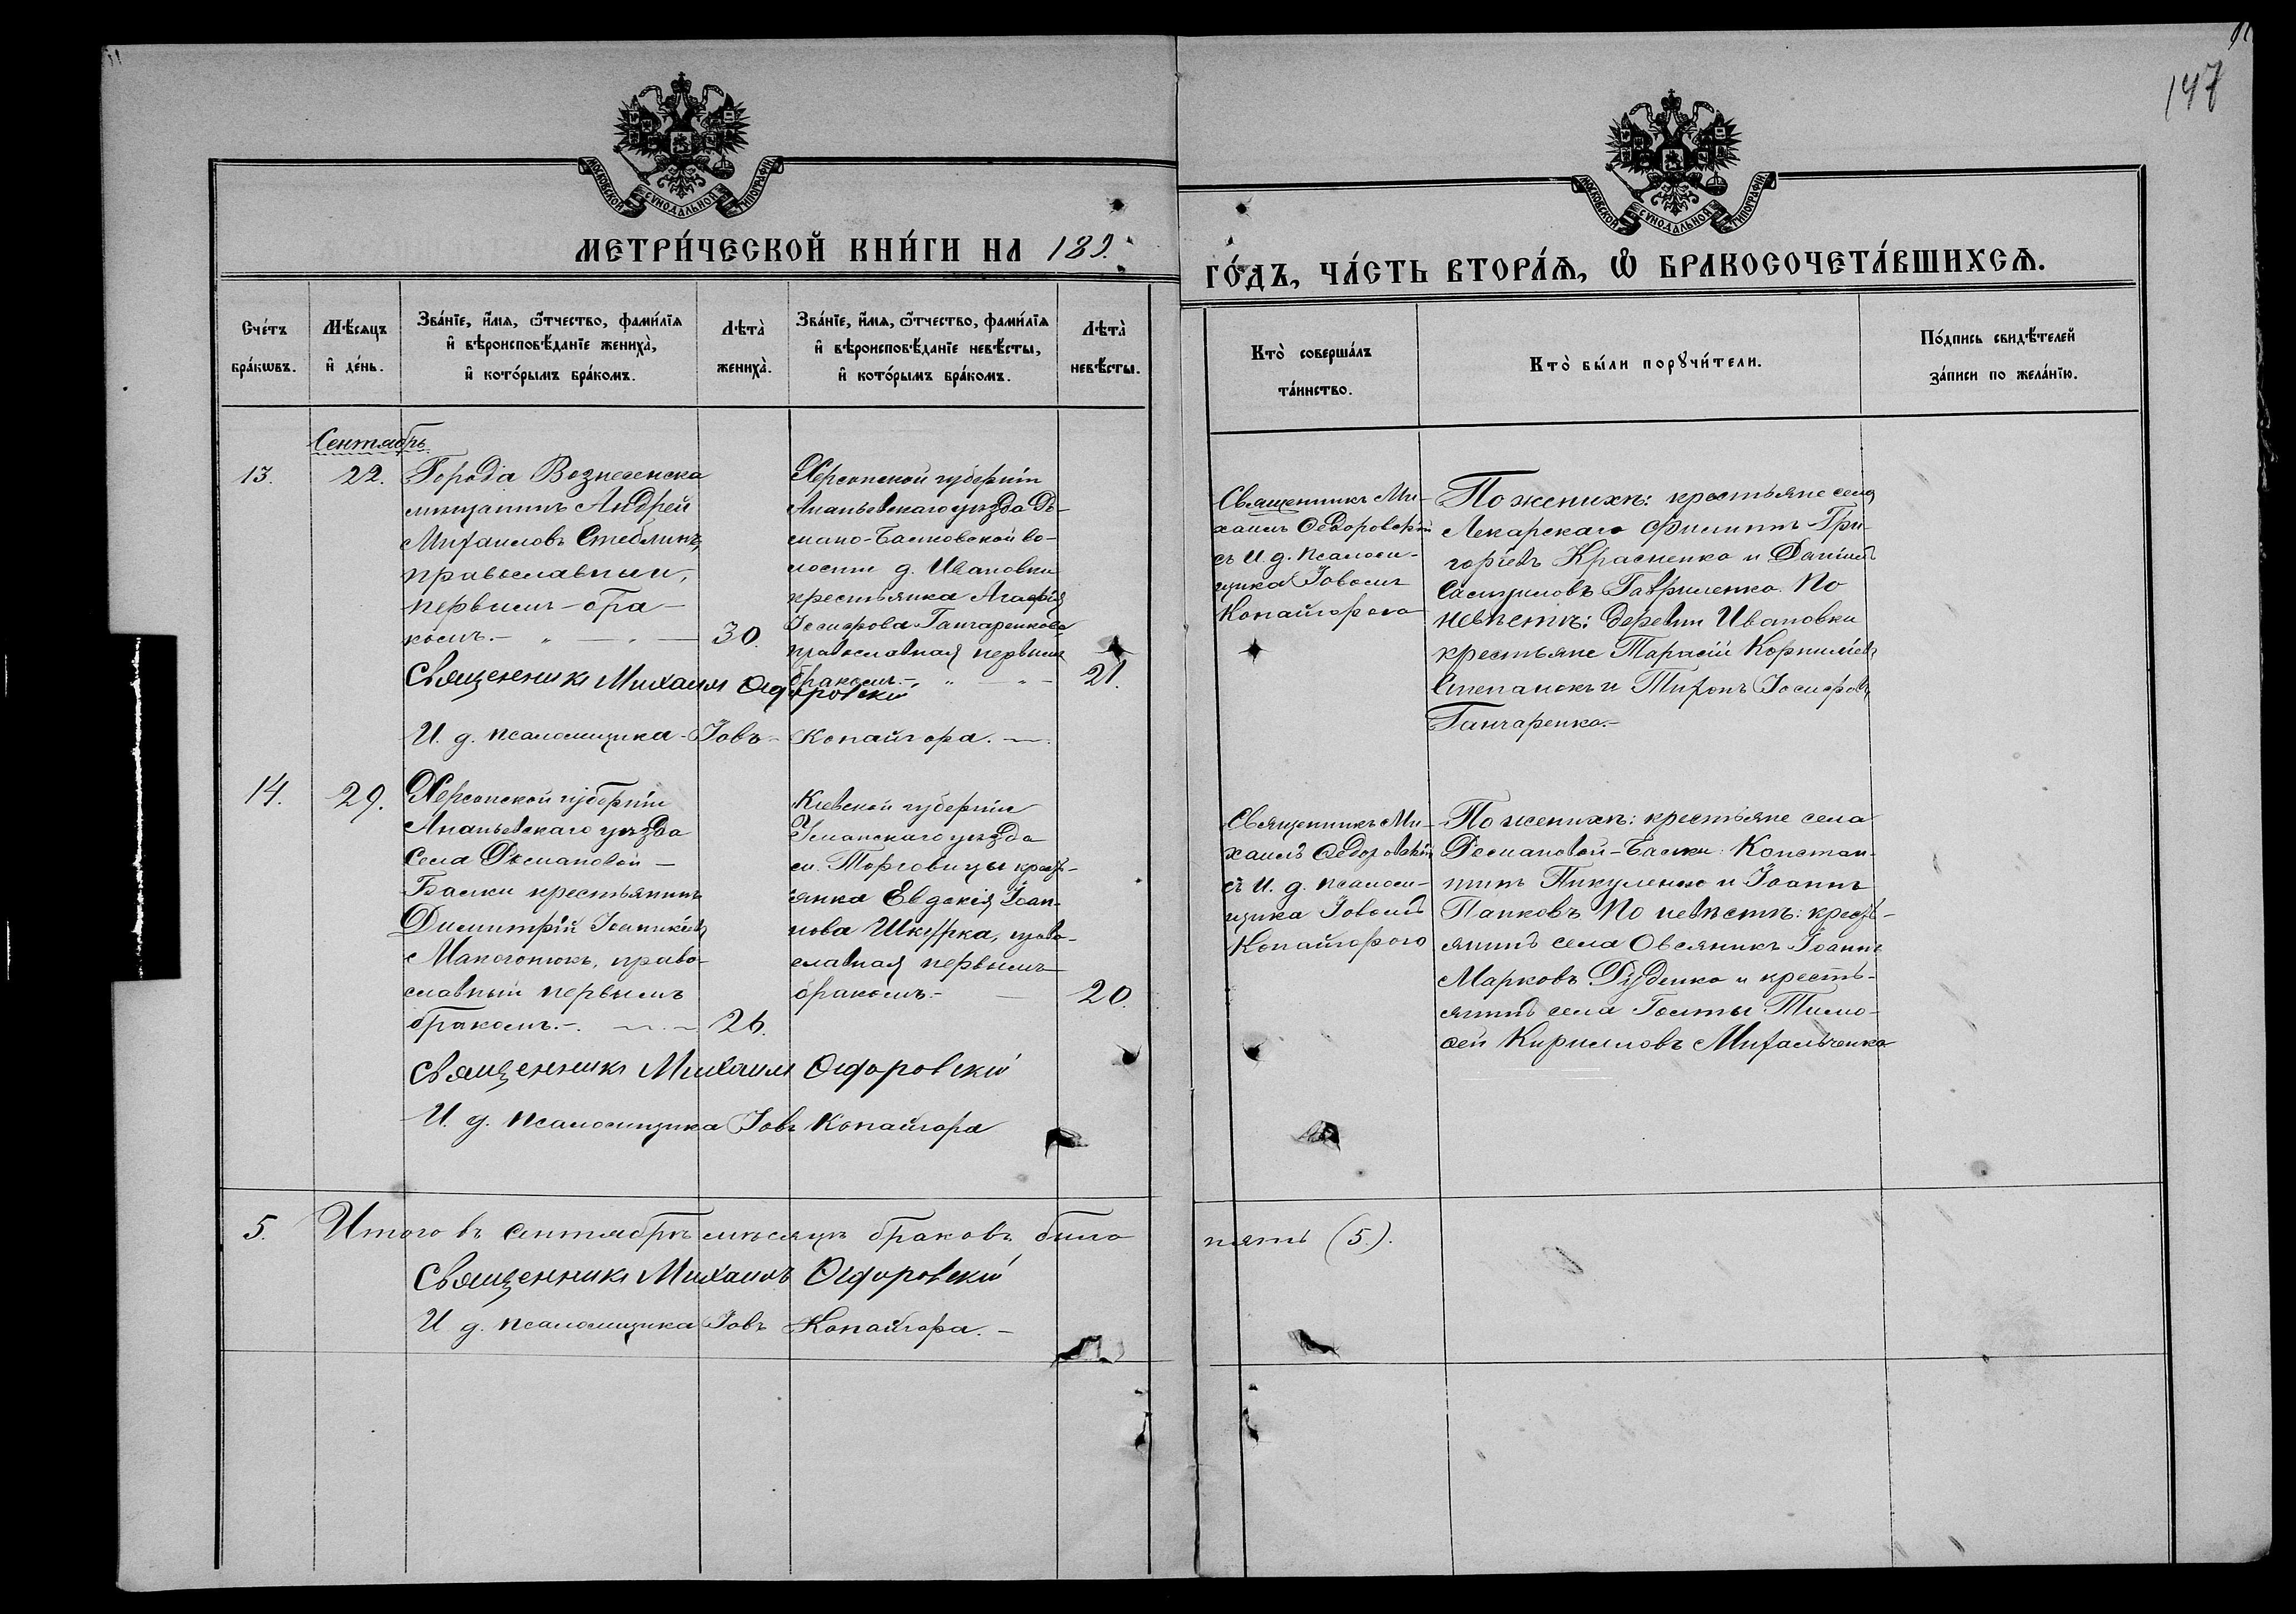 147
МОСКОВСКОЙ СѴНОДАЛЬНОЙ ТИПОГРАФІИ
МОСКОВСКОЙ СѴНОДАЛЬНОЙ ТИПОГРАФІИ
МЕТРИ́ЧЕСКОЙ КНИ́ГИ НА 189.
ГО́ДЪ, ЧА́СТЬ ВТОРА́Я, Ѽ БРАКОСОЧЕТА́ВШИХСЯ.
Сче́тъ
бра́кѡвъ.
Мѣ́сяцъ
и҆ де́нь.
Зва́нїе, и҆́мя, ѻ҆́тчество, фами́лїя
и҆ вѣроисповѣ́данїе жениха̀,
и҆ кото́рымъ бра́комъ.
Лѣта̀
жениха̀.
Зва́нїе, и҆́мя, ѻ҆́тчество, фами́лїя
и҆ вѣроисповѣ́данїе невѣ́сты,
и҆ кото́рымъ бра́комъ.
Лѣта̀
невѣ́сты.
Кто̀ соверша́лъ
та́инство.
Кто̀ бы́ли порꙋчи́тели.
По́дпись свидѣ́телей
за́писи по жела́нїю.
Сентябрь
13.
22.
Города Вознесенска
мѣщанинъ Андрей
Михаиловъ Стеблинъ,
православный,
первымъ бра-
комъ.-
30.
Херсонской губерніи
Ананьевскаго уѣзда Дѣ-
маново-Балковской во-
лости д. Ивановки
крестьянка Агафія
Іосифова Ганчаренкова
православная первымъ
бракомъ.-
21.
Священникъ Ми-
хаилъ Ѳедоровскій
съ И. д. псалом-
щика Іовомъ
Копайгорою
По женихѣ: крестьяне села
Лекарскаго Филиппъ Гри-
горіевъ Красненко и Даніилъ
Самуиловъ Гавриленко. По
невѣстѣ: деревни Ивановки
крестьяне Тарасій Корниліевъ
Степанокъ и Тихонъ Іосифовъ
Ганчаренко.-
Священникъ Михаилъ Ѳедоровскій
И. д. псаломщика Іовъ Копайгора.
14.
29.
Херсонской губерніи
Ананьевскаго уѣзда
села Демановой-
Балки крестьянинъ
Димитрій Іоанникіевъ
Маногонюкъ, право-
славный первымъ
бракомъ.-
26.
Кіевской губерніи
Уманскаго уѣзда
м. Торговицы кресть-
янка Евдокія Іоан-
нова Шкурка, право-
славная первымъ
бракомъ.-
20.
Священникъ Ми-
хаилъ Ѳедоровскій
съ И. д. псалом-
щика Іовомъ
Копайгорою
По женихѣ: крестьяне села
Демановой-Балки: Констан-
тинъ Пикуленко и Іоаннъ
Папковъ. По невѣстѣ: кресть-
янинъ села Овсяникъ Іоаннъ
Марковъ Руденко и кресть-
янинъ села Гольты Тимо-
ѳей Кирилловъ Михальченко
Священникъ Михаилъ Ѳедоровскій
И. д. псаломщика Іовъ Копайгора
5. Итого въ сентябрѣ мѣсяцѣ браковъ было пять (5).
Священникъ Михаилъ Ѳедоровскій
И д. псаломщика Іовъ Копайгора.-